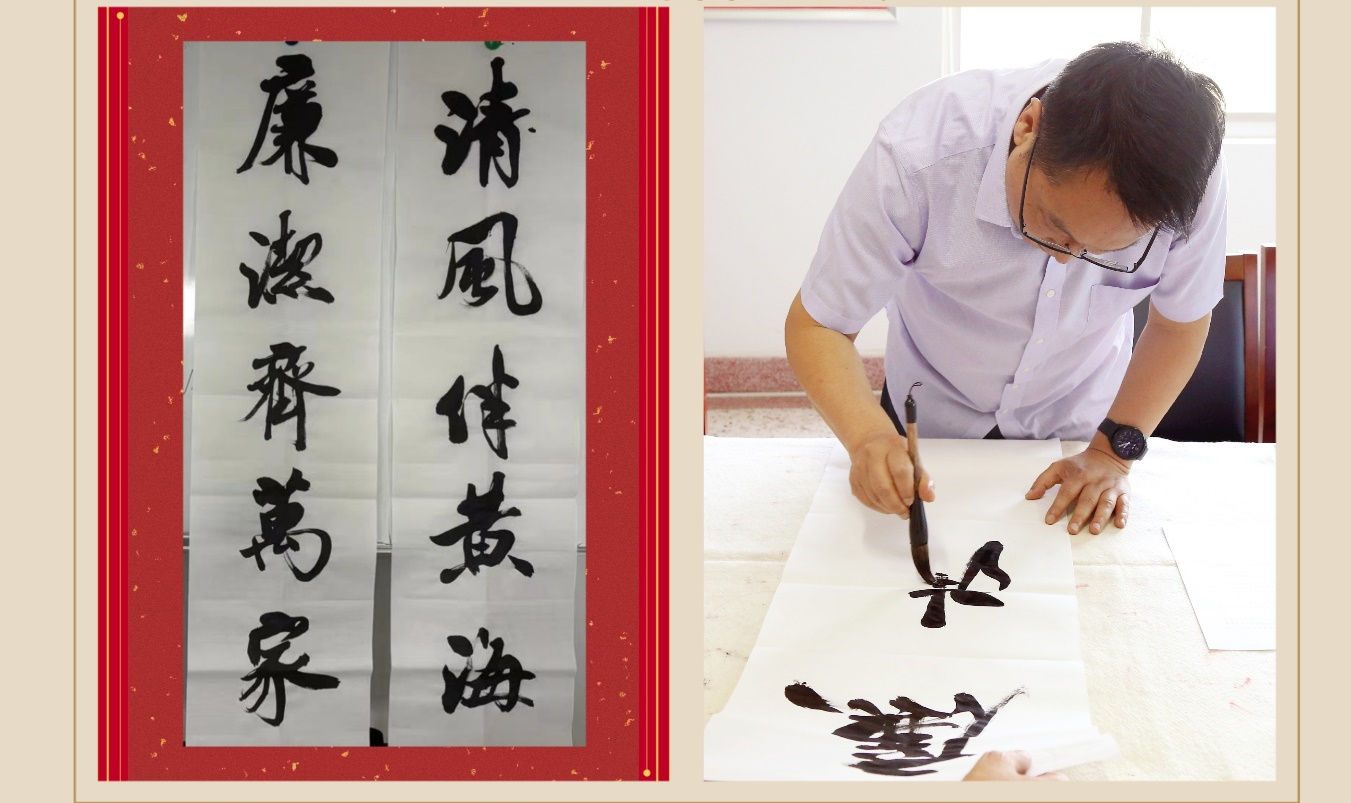 清風伴黄海
廉潔齊萬家